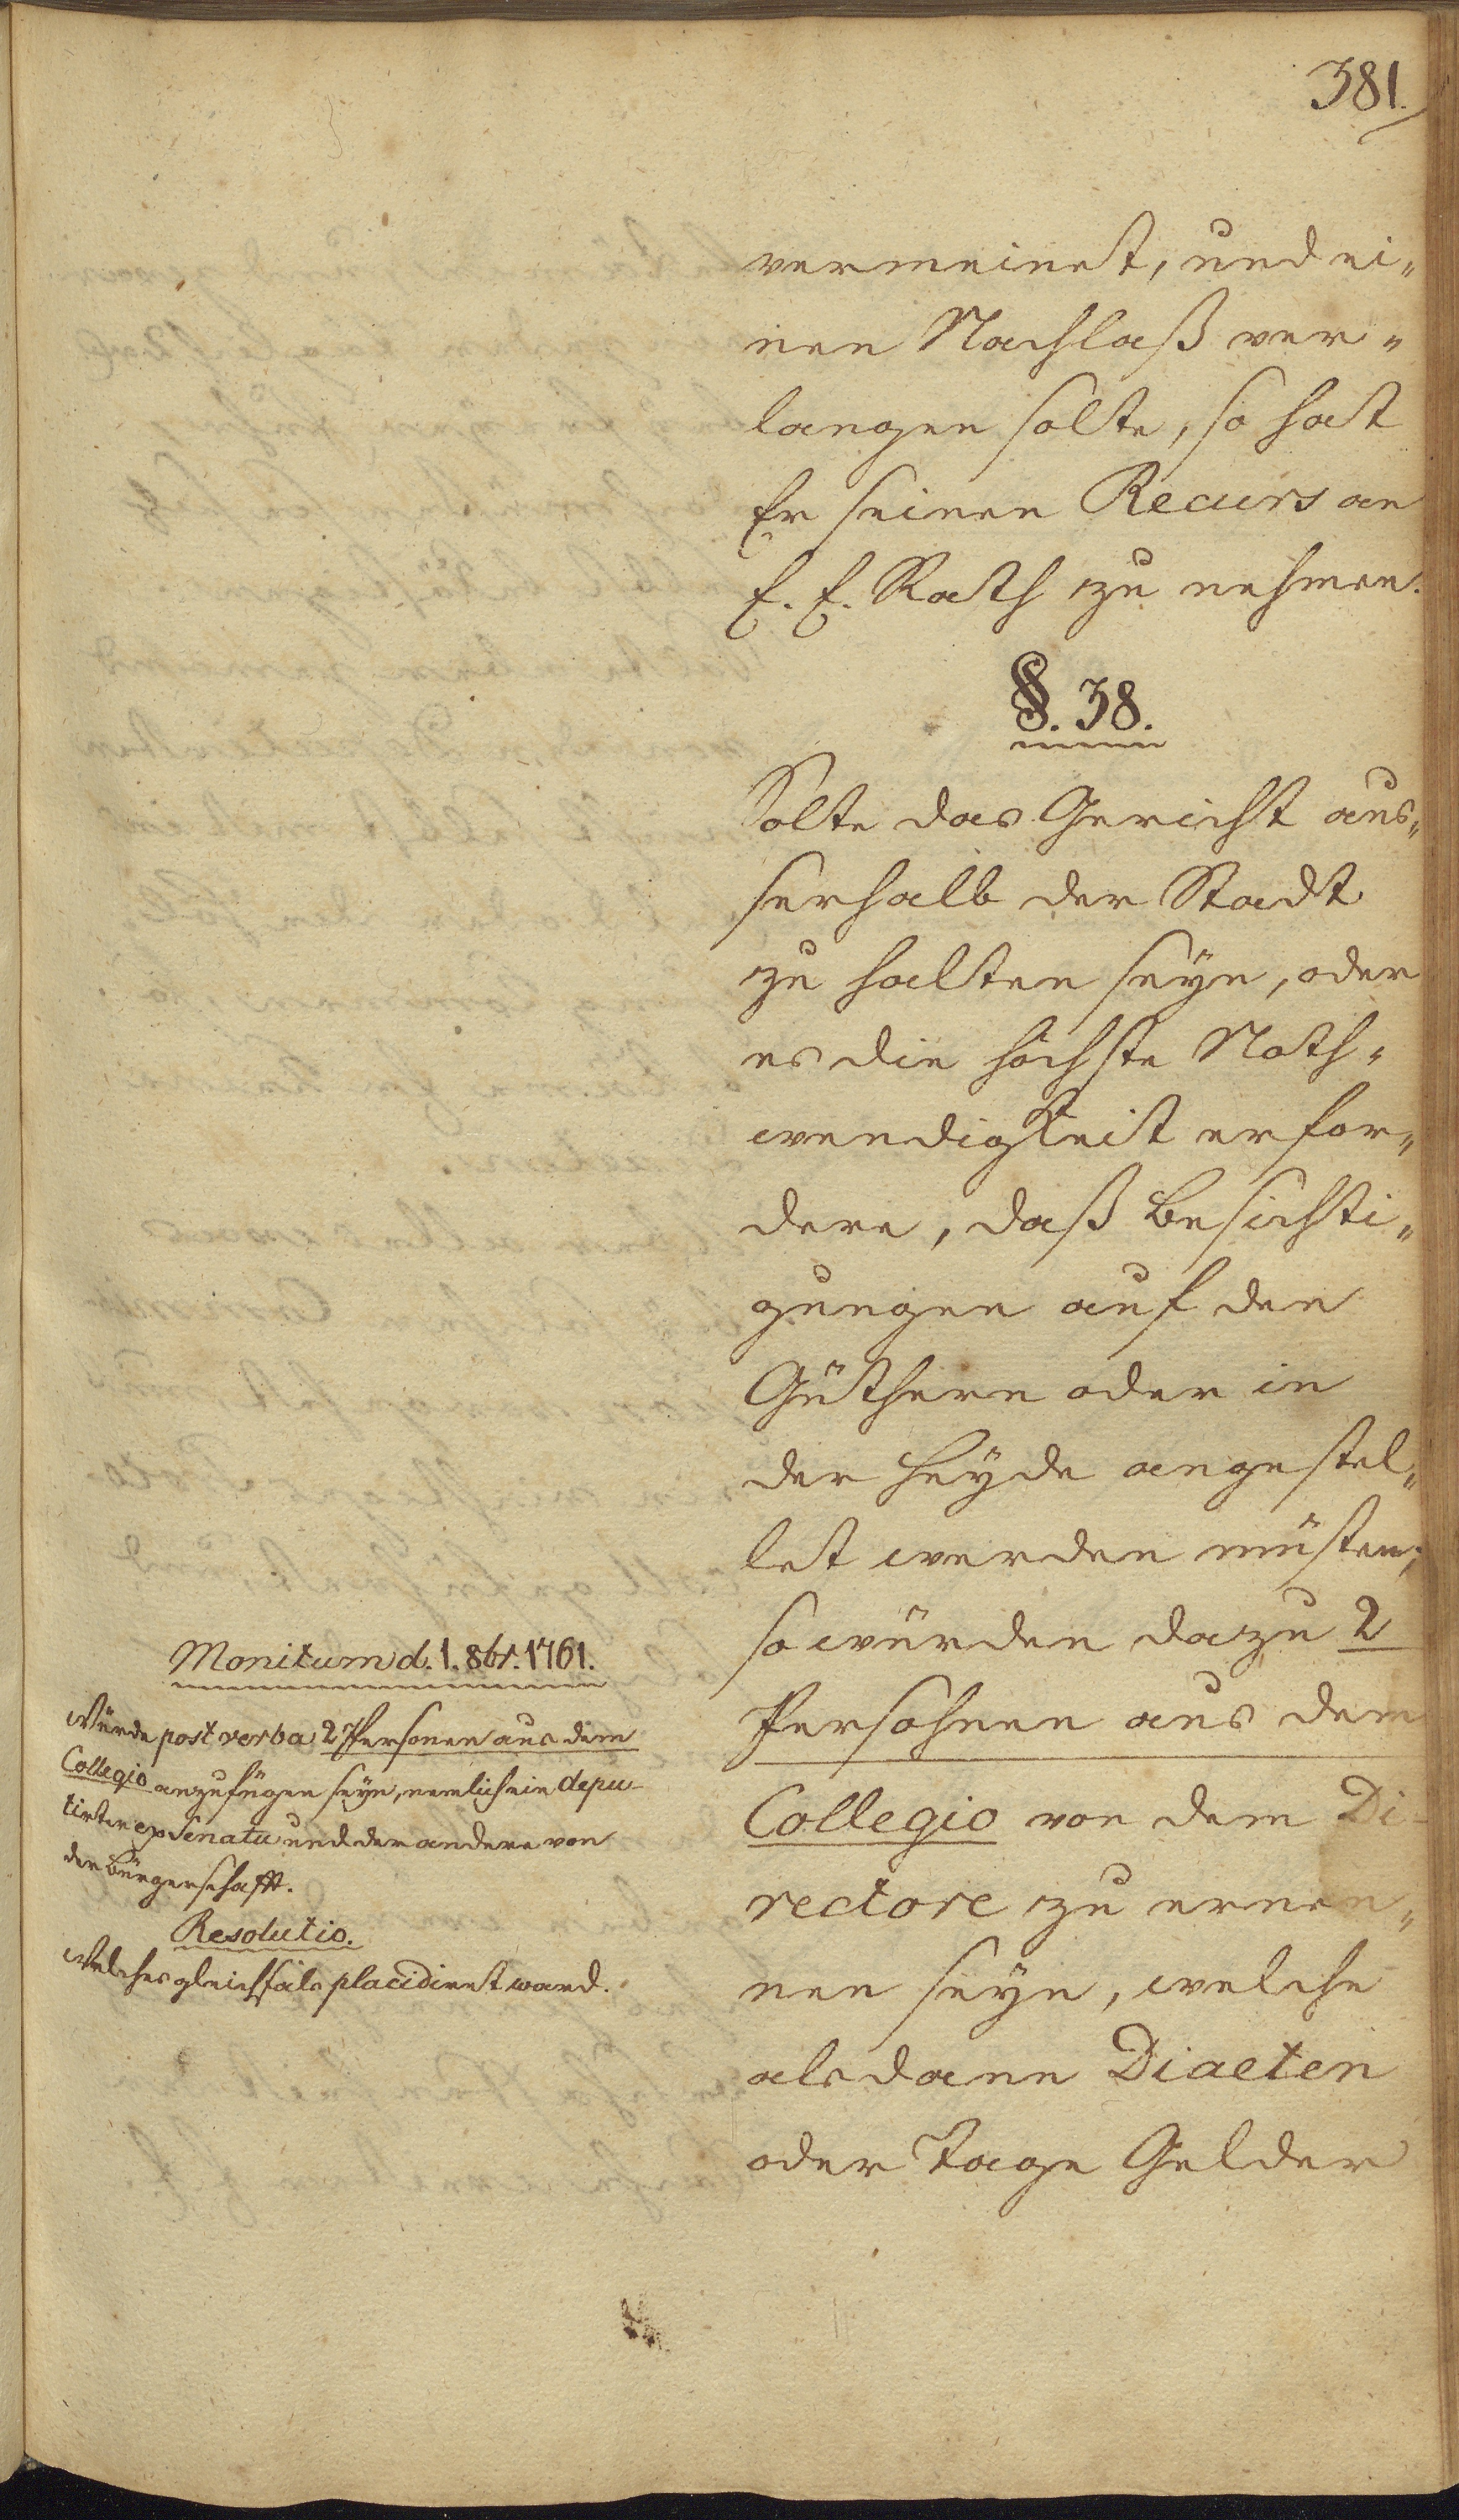 381.
vermeinet, und ei„
nen Nachlaß ver„
langen solte, so hat
Er seinen Recurs an
E. E. Rath zu nehmen.
§. 38.
Solte das Gericht aus„
serhalb der Stadt
zu halten seyn, oder
es die höchste Noth„
wendigkeit erfor„
dere, daß Besichti„
gungen auf den
Güthern oder in
der Heyde angestel„
let werden müsten;
so würden dazu 2
Persohnen aus dem
Collegio von dem Di-
rectore zu ernen„
nen seyn, welche
alsdann Diaeten
oder Tage Gelder
Monitum d. 1. 8br. 1761.
Würde post verba 2 Personen aus dem
Collegio anzufügen seyn, nemlich ein depu-
tirter ex Senatu und der andere von
der Bürgerschafft.
Resolutio.
Welches gleichfals placidiret ward.